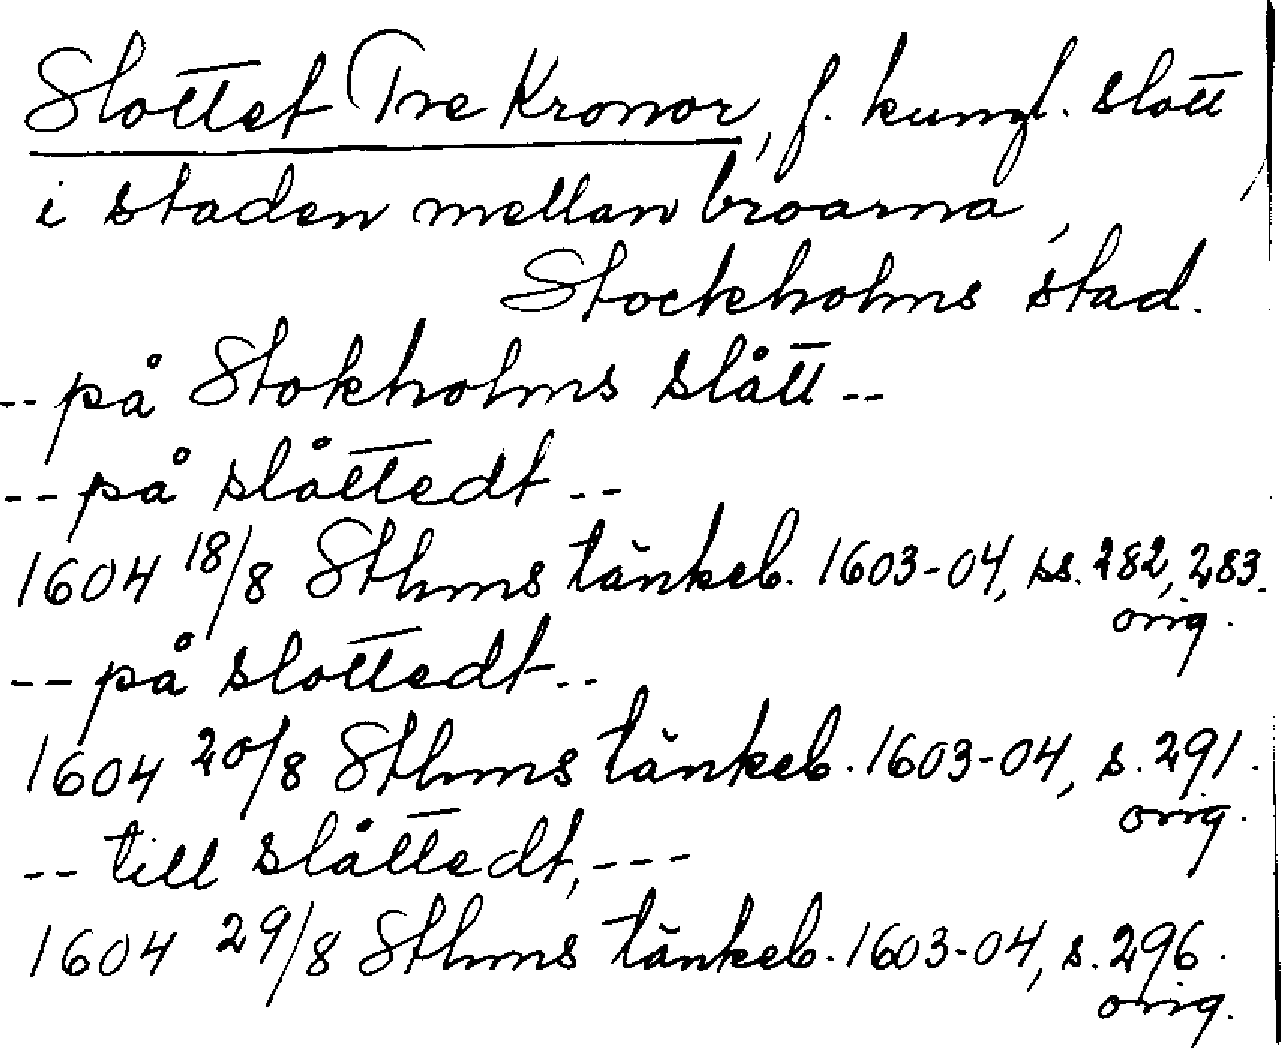 Slottet Tre Kronor, f. kungl. slott
i staden mellan broarna,
Stockholms stad.
-- på Stokholms slått --
-- på slåttedt --
1604 18/8 Sthms tänkeb. 1603-04, ss. 282, 283.
orig.
-- på slottedt --
1604 20/8 Sthms tänkeb. 1603-04, s. 291.
orig.
-- till slåttedt, ---
1604 29/8 Sthms tänkeb. 1603-04, s. 296.
orig.